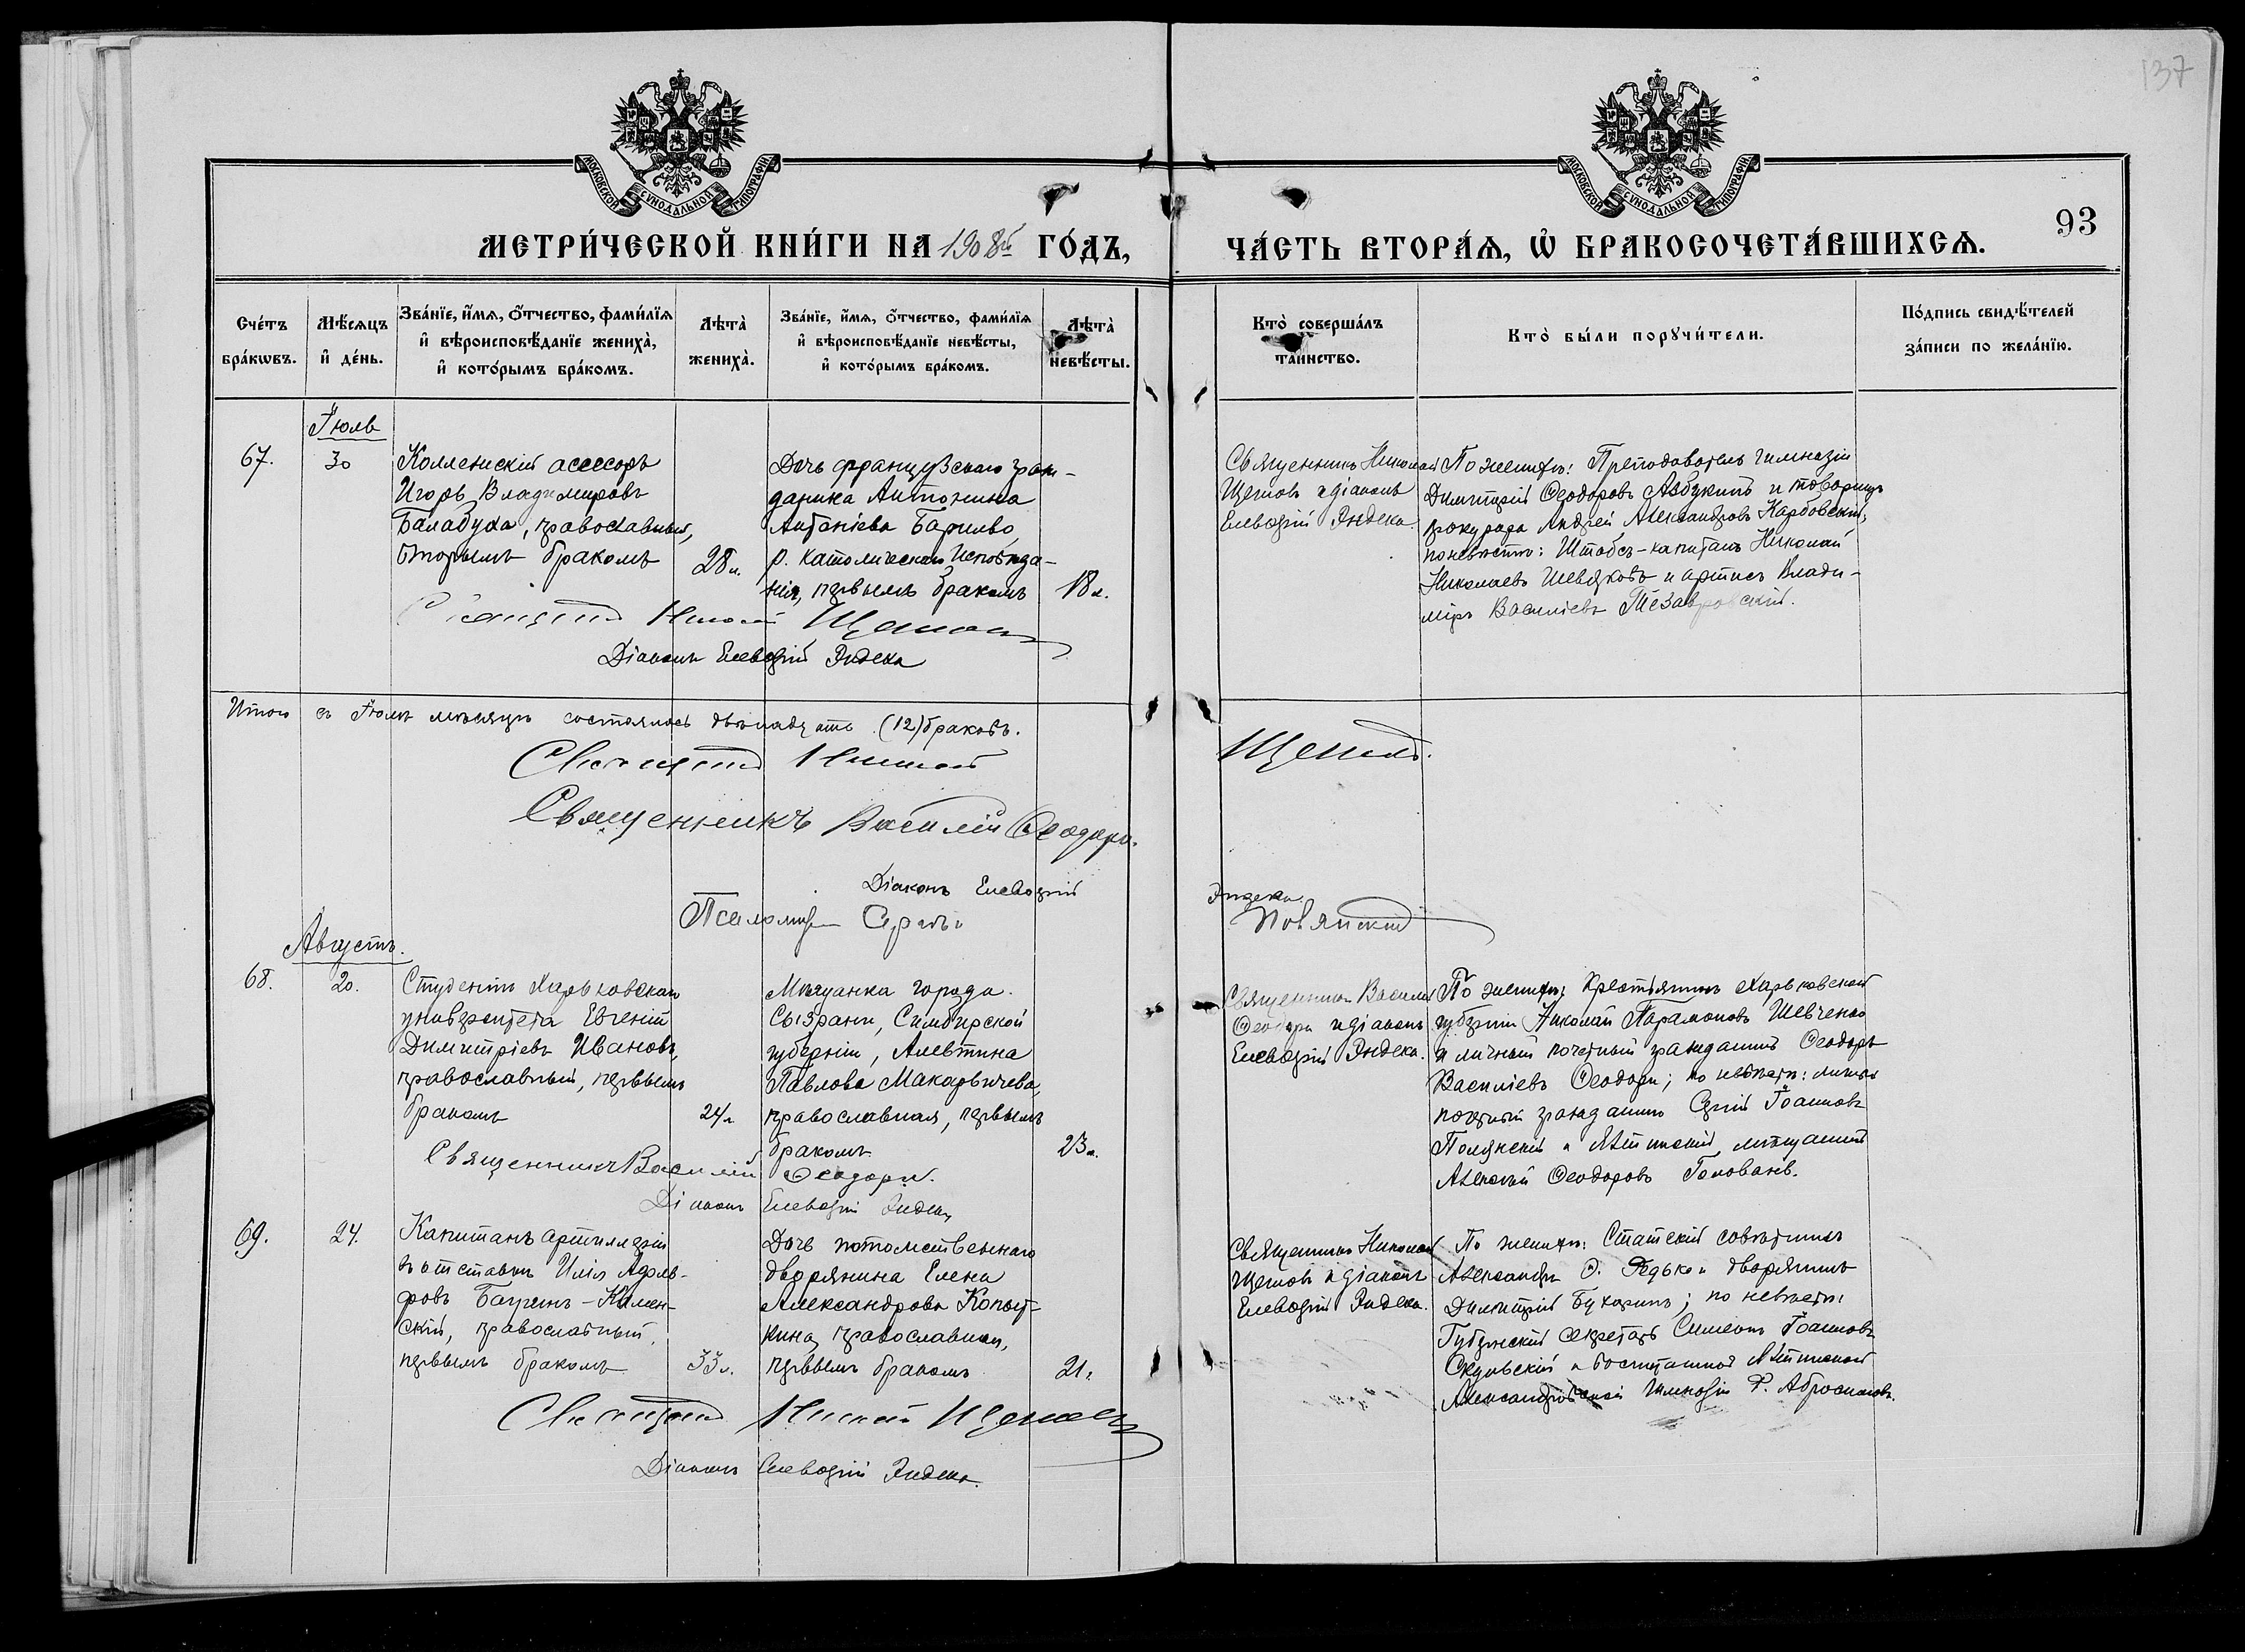 137
МОСКОВСКОЙ СѴНОДАЛЬНОЙ ТИПОГРАФІИ
МОСКОВСКОЙ СѴНОДАЛЬНОЙ ТИПОГРАФІИ
МЕТРИ́ЧЕСКОЙ КНИ́ГИ НА 1908й ГО́ДЪ,
ЧА́СТЬ ВТОРА́Ѧ, Ѡ҆ БРАКОСОЧЕТА́ВШИХСѦ.
93
Сче́тъ бра́кѡвъ.
Мѣ́сѧцъ и҆ де́нь.
Зва́нїе, и҆́мѧ, ѻ҆́тчество, фами́лїѧ
и҆ вѣроисповѣ́данїе жениха̀,
и҆ кото́рымъ бра́комъ.
Лѣта̀ жениха̀.
Зва́нїе, и҆́мѧ, ѻ҆́тчество, фами́лїѧ
и҆ вѣроисповѣ́данїе невѣ́сты,
и҆ кото́рымъ бра́комъ.
Лѣта̀ невѣ́сты.
Кто̀ соверша́лъ таинство.
Кто̀ бы́ли порꙋчи́тели.
По́дпись свидѣ́телей
за́писи по жела́нїю.
Іюль
67.
30
Коллежскій асессоръ
Игорь Владимировъ
Балабуха, православный,
вторымъ бракомъ
28 л.
Дочь французскаго граж-
данина Антонина
р. католическаго исповѣда-
нія, первымъ бракомъ
18 л.
Священникъ Николай
Щетовъ и діаконъ
Елевѳерій Эндека.
По женихѣ: Преподаватель гимназіи
Димитрій Ѳеодоровъ Азбукинъ и товарищъ
прокурора Андрей Александровъ Карбовскій;
по невѣстѣ: Штабсъ-капитанъ Николай
Николаевъ Шевяковъ и артистъ Влади-
міръ Василіевъ Тезавровскій.
Діаконъ Елевѳерій Эндека
Итого въ Іюлѣ мѣсяцѣ состоялось двѣнадцать (12) браковъ.
Священникъ Николай Щетовъ.
Священникъ Василій Ѳеодори.
Діаконъ Елевѳерій Эндека.
Псаломщ.
Августъ.
68.
20.
Студентъ Харьковскаго
университета Евгеній
Димитріевъ Ивановъ,
православный, первымъ
бракомъ
24 л.
Мѣщанка города
Сызрани, Симбирской
губерніи, Алевтина
Павлова Макарычева,
православная, первымъ
бракомъ
23 л.
Священникъ Василій
Ѳеодори и діаконъ
Елевѳерій Эндека.
По женихѣ: Крестьянинъ Харьковской
губерніи Николай Парамоновъ Шевченко
и личный почетный гражданинъ Ѳеодоръ
Василіевъ Ѳеодори; по невѣстѣ: личный
почетный гражданинъ Сергій Іоанновъ
Полянскій и Ялтинскій мѣщанинъ
Алексѣй Ѳеодоровъ Головачевъ.
Священникъ Василій Ѳеодори.
Діаконъ Елевѳерій Эндека
69.
24.
Капитанъ артиллеріи
въ отставкѣ Илія
Камен-
скій, православный,
первымъ бракомъ
33 л.
Дочь потомственнаго
дворянина Елена
Александрова Копыт-
кина, православная,
первымъ бракомъ
21.
Священникъ Николай
Щетовъ и діаконъ
Елевѳерій Эндека.
По женихѣ: Статскій совѣтникъ
Александръ Ѳ. Редько и дворянинъ
Димитрій Бухаринъ; по невѣстѣ:
Губернскій секретарь Симеонъ Іоанновъ
и воспитанникъ Ялтинской
Александровской гимназіи Р. Абросимовъ.
Священникъ Николай Щетовъ
Діаконъ Елевѳерій Эндека.